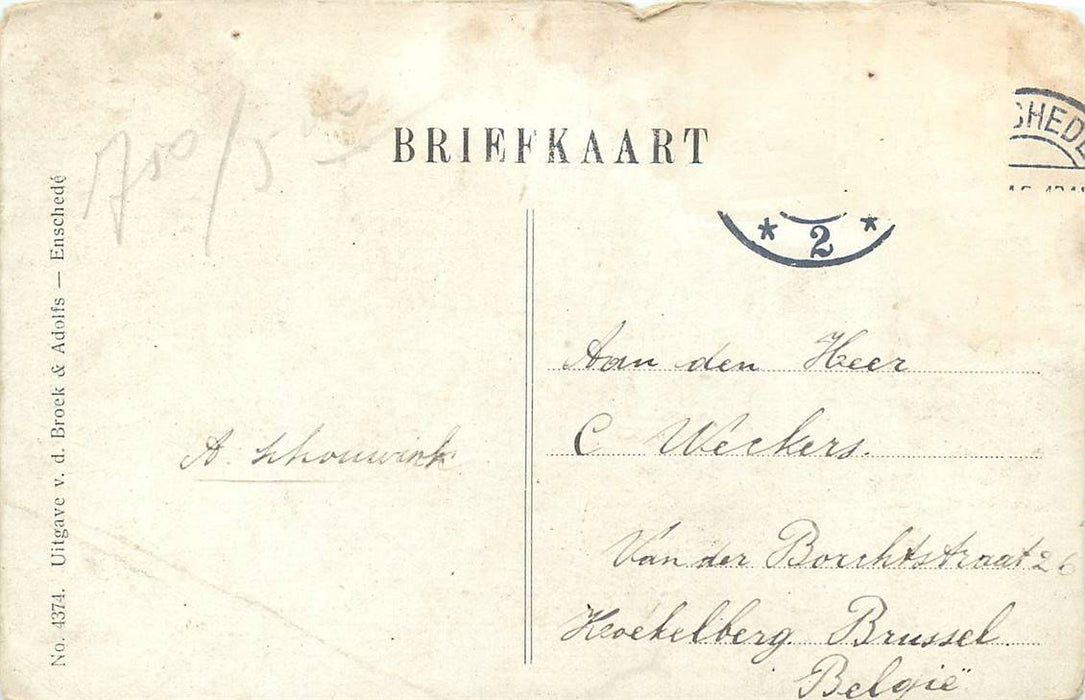 BRIEFKAART
No. 4374. Uitgave v. d. Broek & Adolfs — Enschedé
2
A. Schouwink
Aan den Heer
C Weckers.
Van der Borchtstraat 26
Koekelberg Brussel.
België